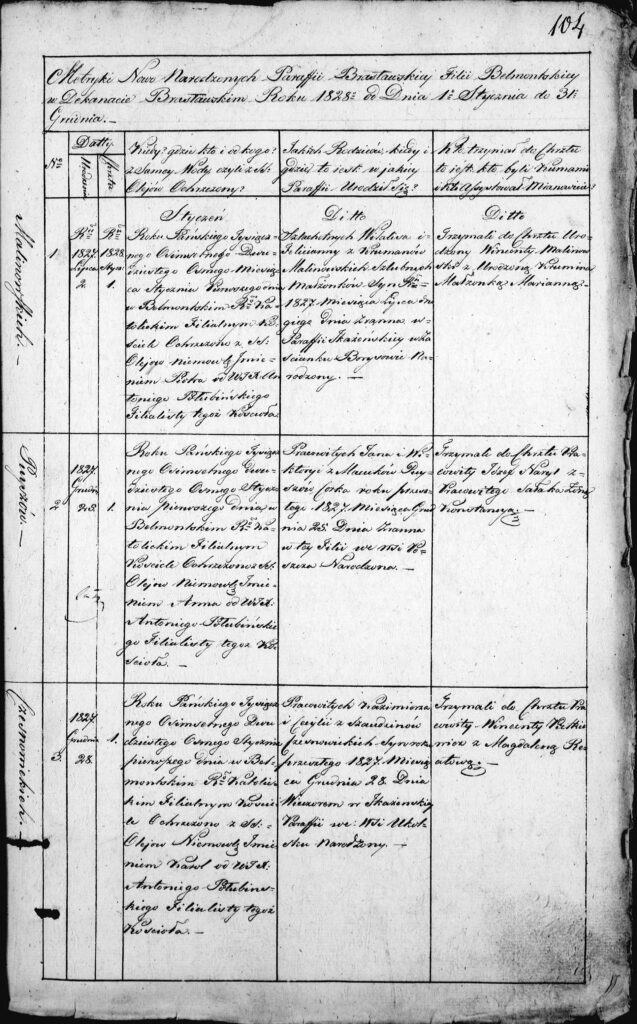 104
Metryki Nowo Narodzonych Paraffii Brasławskiej Filii Belmontskiey
w Dekanacie Brasławskim Roku 1828º do Dnia 1º Stycznia do 31º
Grudnia. —
Nº
Datty
Urodzenia
Chrztu
Kiedy? gdzie kto i od kogo?
z Samey Wody czyli z SS:
Olejów Ochrzczony?
Jakich Rodziców, kiedy i
gdzie to jest w jakiey
Paraffii Urodził Się?
Kto trzymał do Chrztu
to jest: kto byli Kumami
i kto Assystował Mianowicie?
Malinowskich.
1
Rºku
1827
Lipca
2
Rºku
1828
Stycz:
1.
Styczeń
Roku Pańskiego Tysiącz-
nego Ośmsetnego Dwu-
dziestego Osmego Miesią-
ca Stycznia Pierwszego dnia
w Belmontskim Rº Ka-
tolickim Filialnym Ko-
ściele Ochrzczono z SS:
Olejów niemowlę Imie-
niem Piotra od WJX: An-
toniego Połubińskiego
Filialisty tegoż Kościoła.
Ditto
Szlachetnych Witalisa i
Felicyanny z Kumanów
Malinowskich Szlubnych
Małżonków Syn Rº
1827 Miesiąca Lipca dru-
giego dnia Zranna w
Paraffii Ikaźnieńskiey w Za-
ścianku Borysowie Na-
rodzony. —
Ditto
Trzymali do Chrztu Uro-
dzony Wincenty Malinow-
ski z Urodzoną
Małżonką Marianną.
Puyszów.
2
1827.
Grudn:
25.
1.
Roku Pańskiego Tysiącz-
nego Ośmsetnego Dwu-
dziestego Osmego Stycz-
nia Pierwszego dnia w
Belmontskim Rº Ka-
tolickim Filialnym
Kościele Ochrzczono z SS:
Olejów Niemowlę Imie-
niem Anna od WJX:
Antoniego Połubińskie-
go Filialisty tegoż Ko-
ścioła. —
Pracowitych Jana i Wi-
ktoryi z Macuków Puy-
szów Corka roku przesz-
łego 1827. Miesiąca Grud-
nia 25. Dnia Zranna
w tey Filii we Wsi
Narodzona. —
Trzymali do Chrztu Pra-
cowity Józef Naryl z
Pracowitego Żoną
Konstancyą.
3.
1827.
Grudnia
28.
1.
Roku Pańskiego Tysiącz-
nego Ośmsetnego Dwu-
dziestego Osmego Stycznia
pierwszego dnia w Bel-
montskim Rº Katolic-
kim Filialnym Koście-
le Ochrzczono z SS:
Olejów Niemowlę Imie-
niem Karol od WJX:
Antoniego Połubińs-
kiego Filialisty tegoż
Kościoła. —
Pracowitych Kazimierza
i Cecylii z Szaudzinów
Syn roku
przeszłego 1827. Miesią-
ca Grudnia 28. Dnia
Wieczorem w Ikaźnieńskiey
Paraffii we Wsi Ukol-
sku Narodzony. —
Trzymali do Chrztu Pra-
cowity Wincenty
z Magdaleną